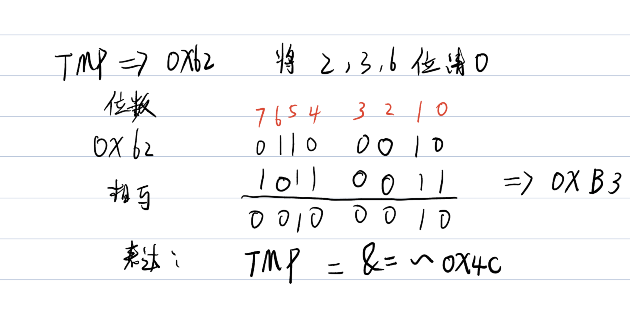 TMP => 0X62 将 2,3,6 位清0
位数 7 6 5 4 3 2 1 0
0X62 0 1 1 0 0 0 1 0
相与 1 0 1 1 0 0 1 1 => 0X B3
0 0 1 0 0 0 1 0
表达: TMP = &= ~0X4C